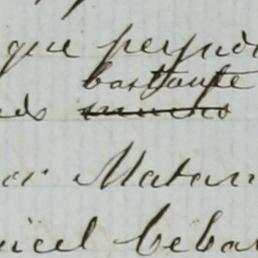 que perjudi
bastante
ado ~~mucho~~
or Matan
niel Ceba